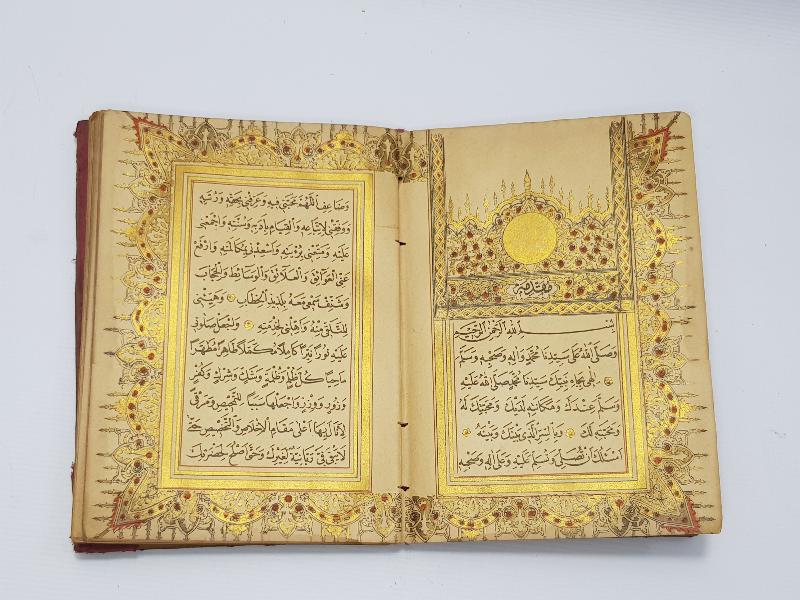 مقدمة
بسم الله الرحمن الرحيم
وصلى الله على سيدنا محمد واله وصحبه وسلم
الهي بجاه نبيك سيدنا محمد صلى الله عليه
وسلم عندك ومكانته لديك ومحبتك له
ومحبته لك وبالسر الذي بينك وبينه
اسئلك ان تصلي وتسلم عليه وعلى اله وصحبه
وضاعف اللهم محبتي فيه وعرفني بحقه ورتبه
ووفقني لاتباعه والقيام بادبه وسنته واجمعني
عليه ومتعني برؤيته واسعدني بمكالمته وارفع
عني العوائق والعلائق والوسائط والحجاب
وشنف سمعي معه بلذيذ الخطاب وهيئني
للتلقي منه واهلني لخدمته واجعل صلوتي
عليه نورا نيرا كاملا مكملا طاهرا مطهرا
ماحيا كل ظلم وظلمة وشك وشرك وكفر
وزور ووزر واجعلها سببا للتمحيص ومرقى
لانال بها اعلى مقام الاخلاص والتخصيص حتى
لا يبقى في ربانية لغيرك وحتى اصلح لحضرتك